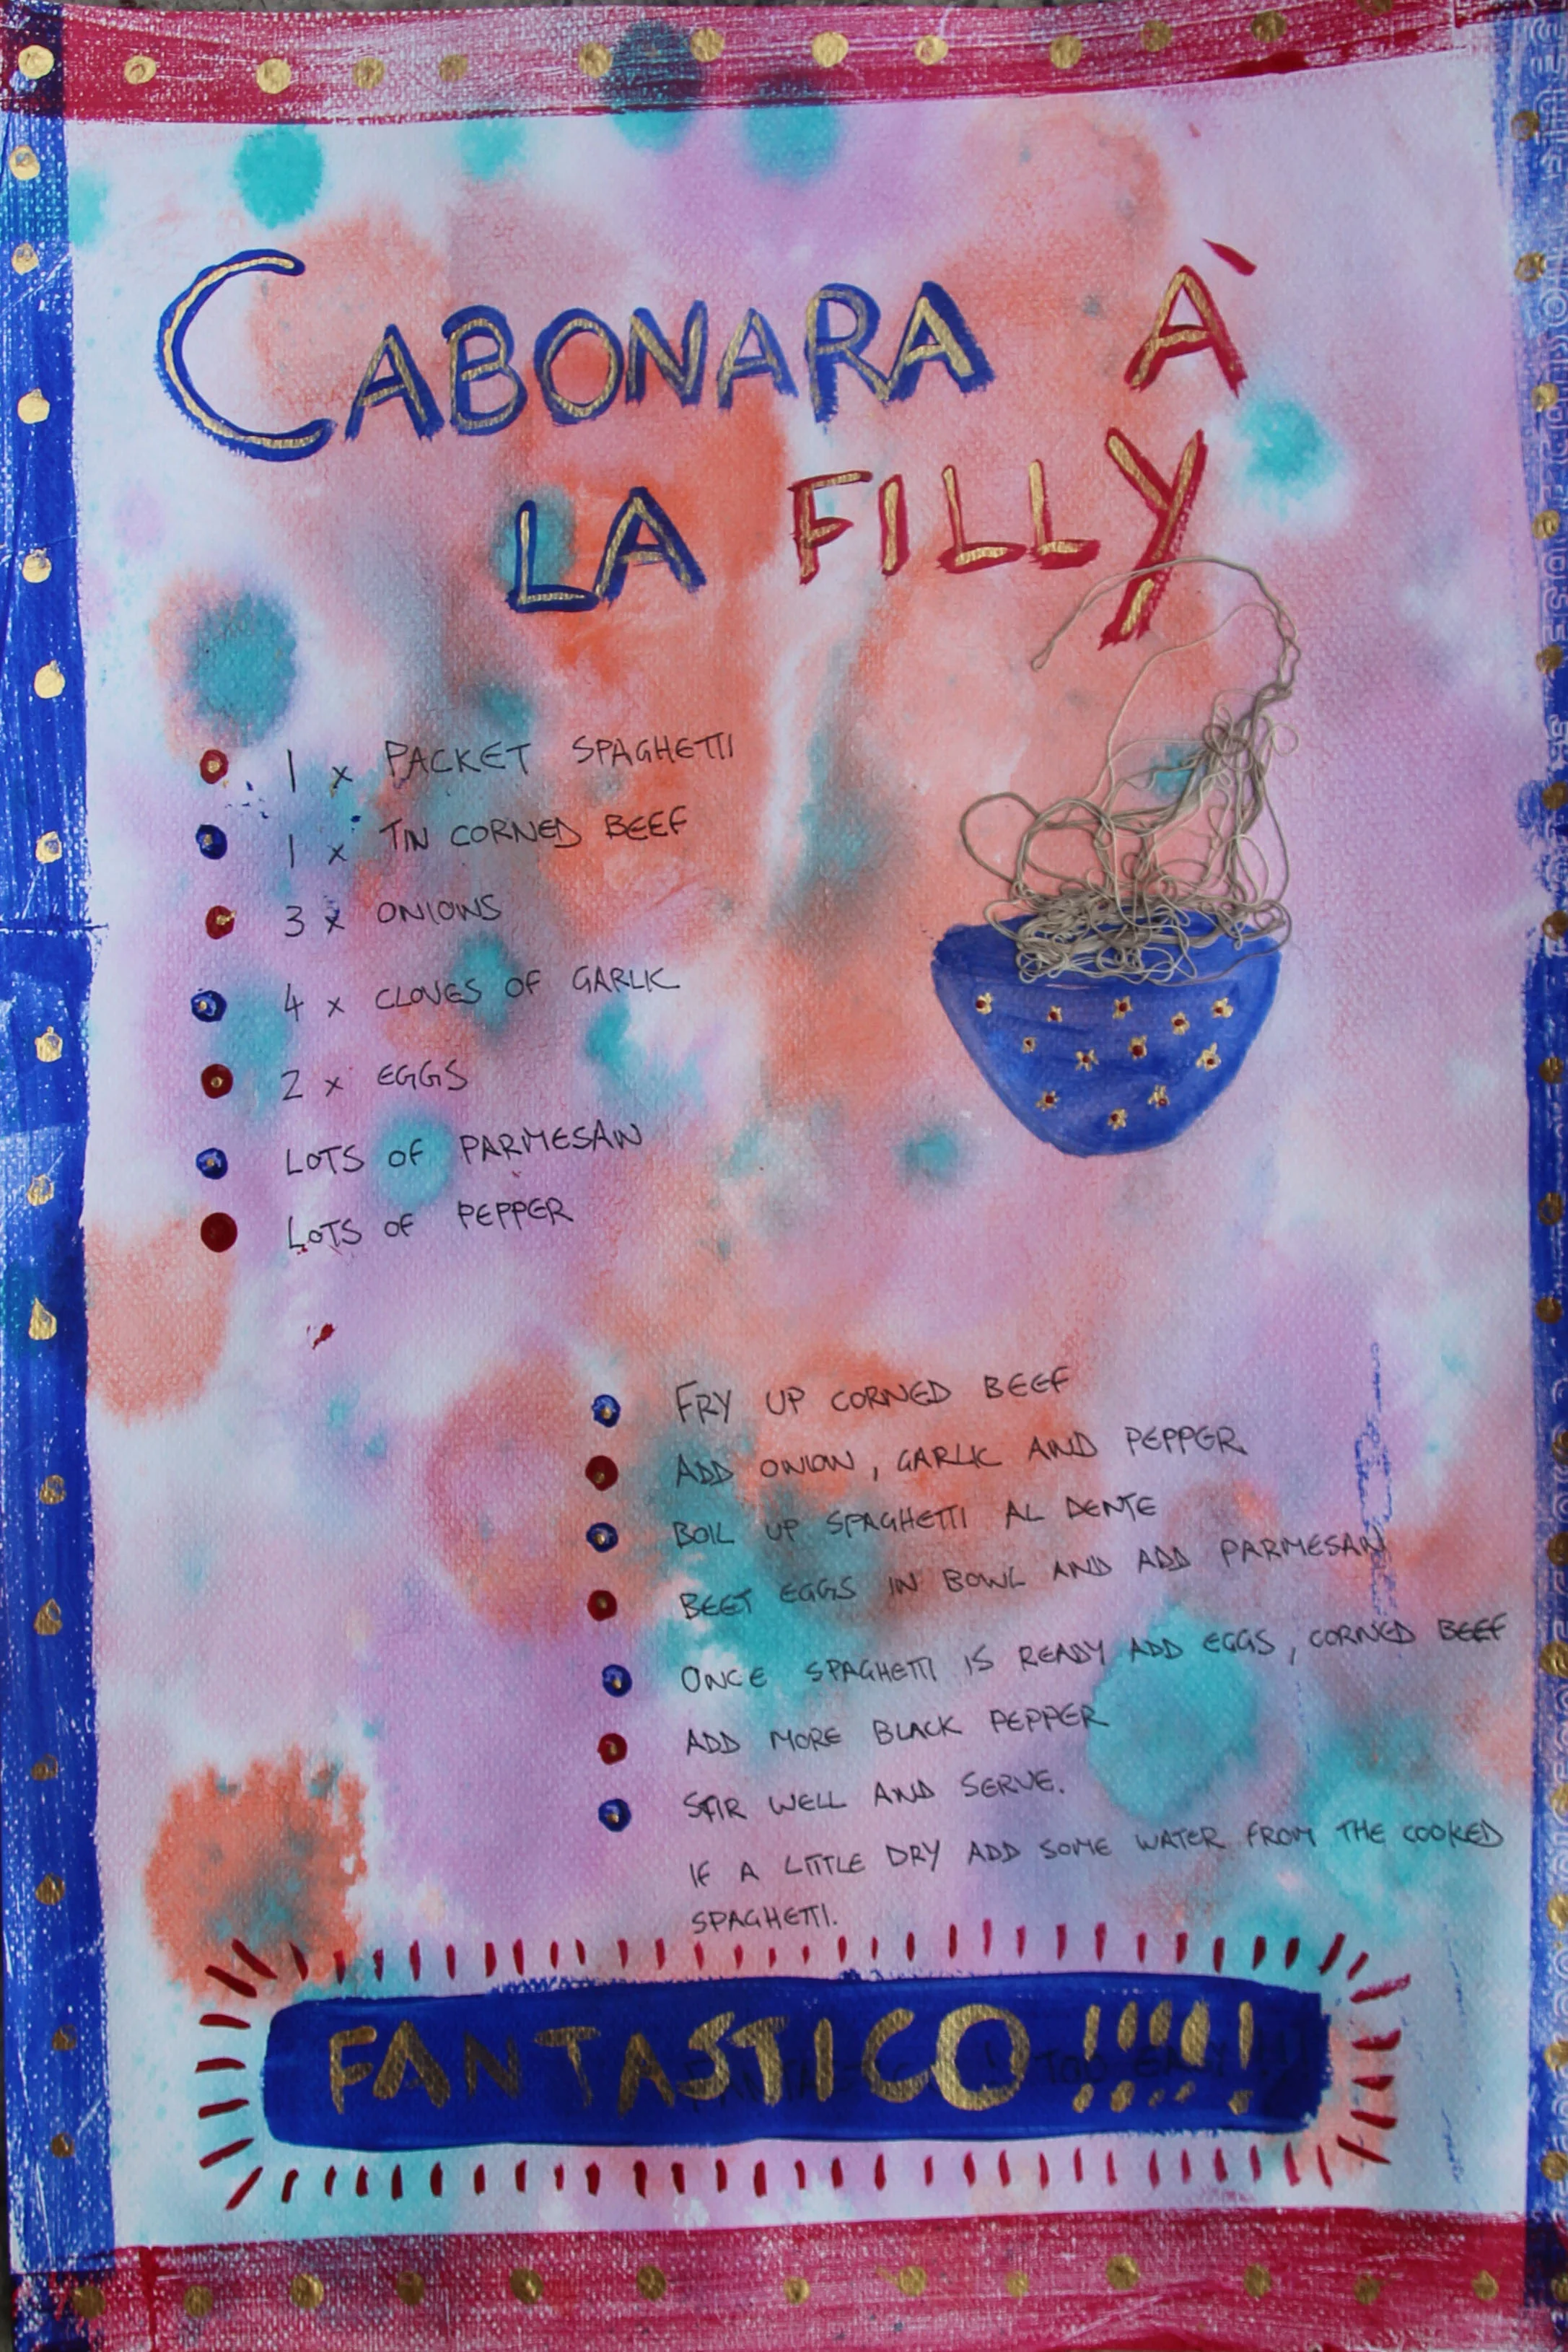 CABONARA À
LA FILLY
1 x PACKET SPAGHETTI
1 x TIN CORNED BEEF
3 x ONIONS
4 x CLOVES OF GARLIC
2 x EGGS
LOTS OF PARMESAN
LOTS OF PEPPER
FRY UP CORNED BEEF
ADD ONION, GARLIC AND PEPPER
BOIL UP SPAGHETTI AL DENTE
BEET EGGS IN BOWL AND ADD PARMESAN
ONCE SPAGHETTI IS READY ADD EGGS, CORNED BEEF
ADD MORE BLACK PEPPER
STIR WELL AND SERVE.
IF A LITTLE DRY ADD SOME WATER FROM THE COOKED
SPAGHETTI.
FANTASTICO!!!!!